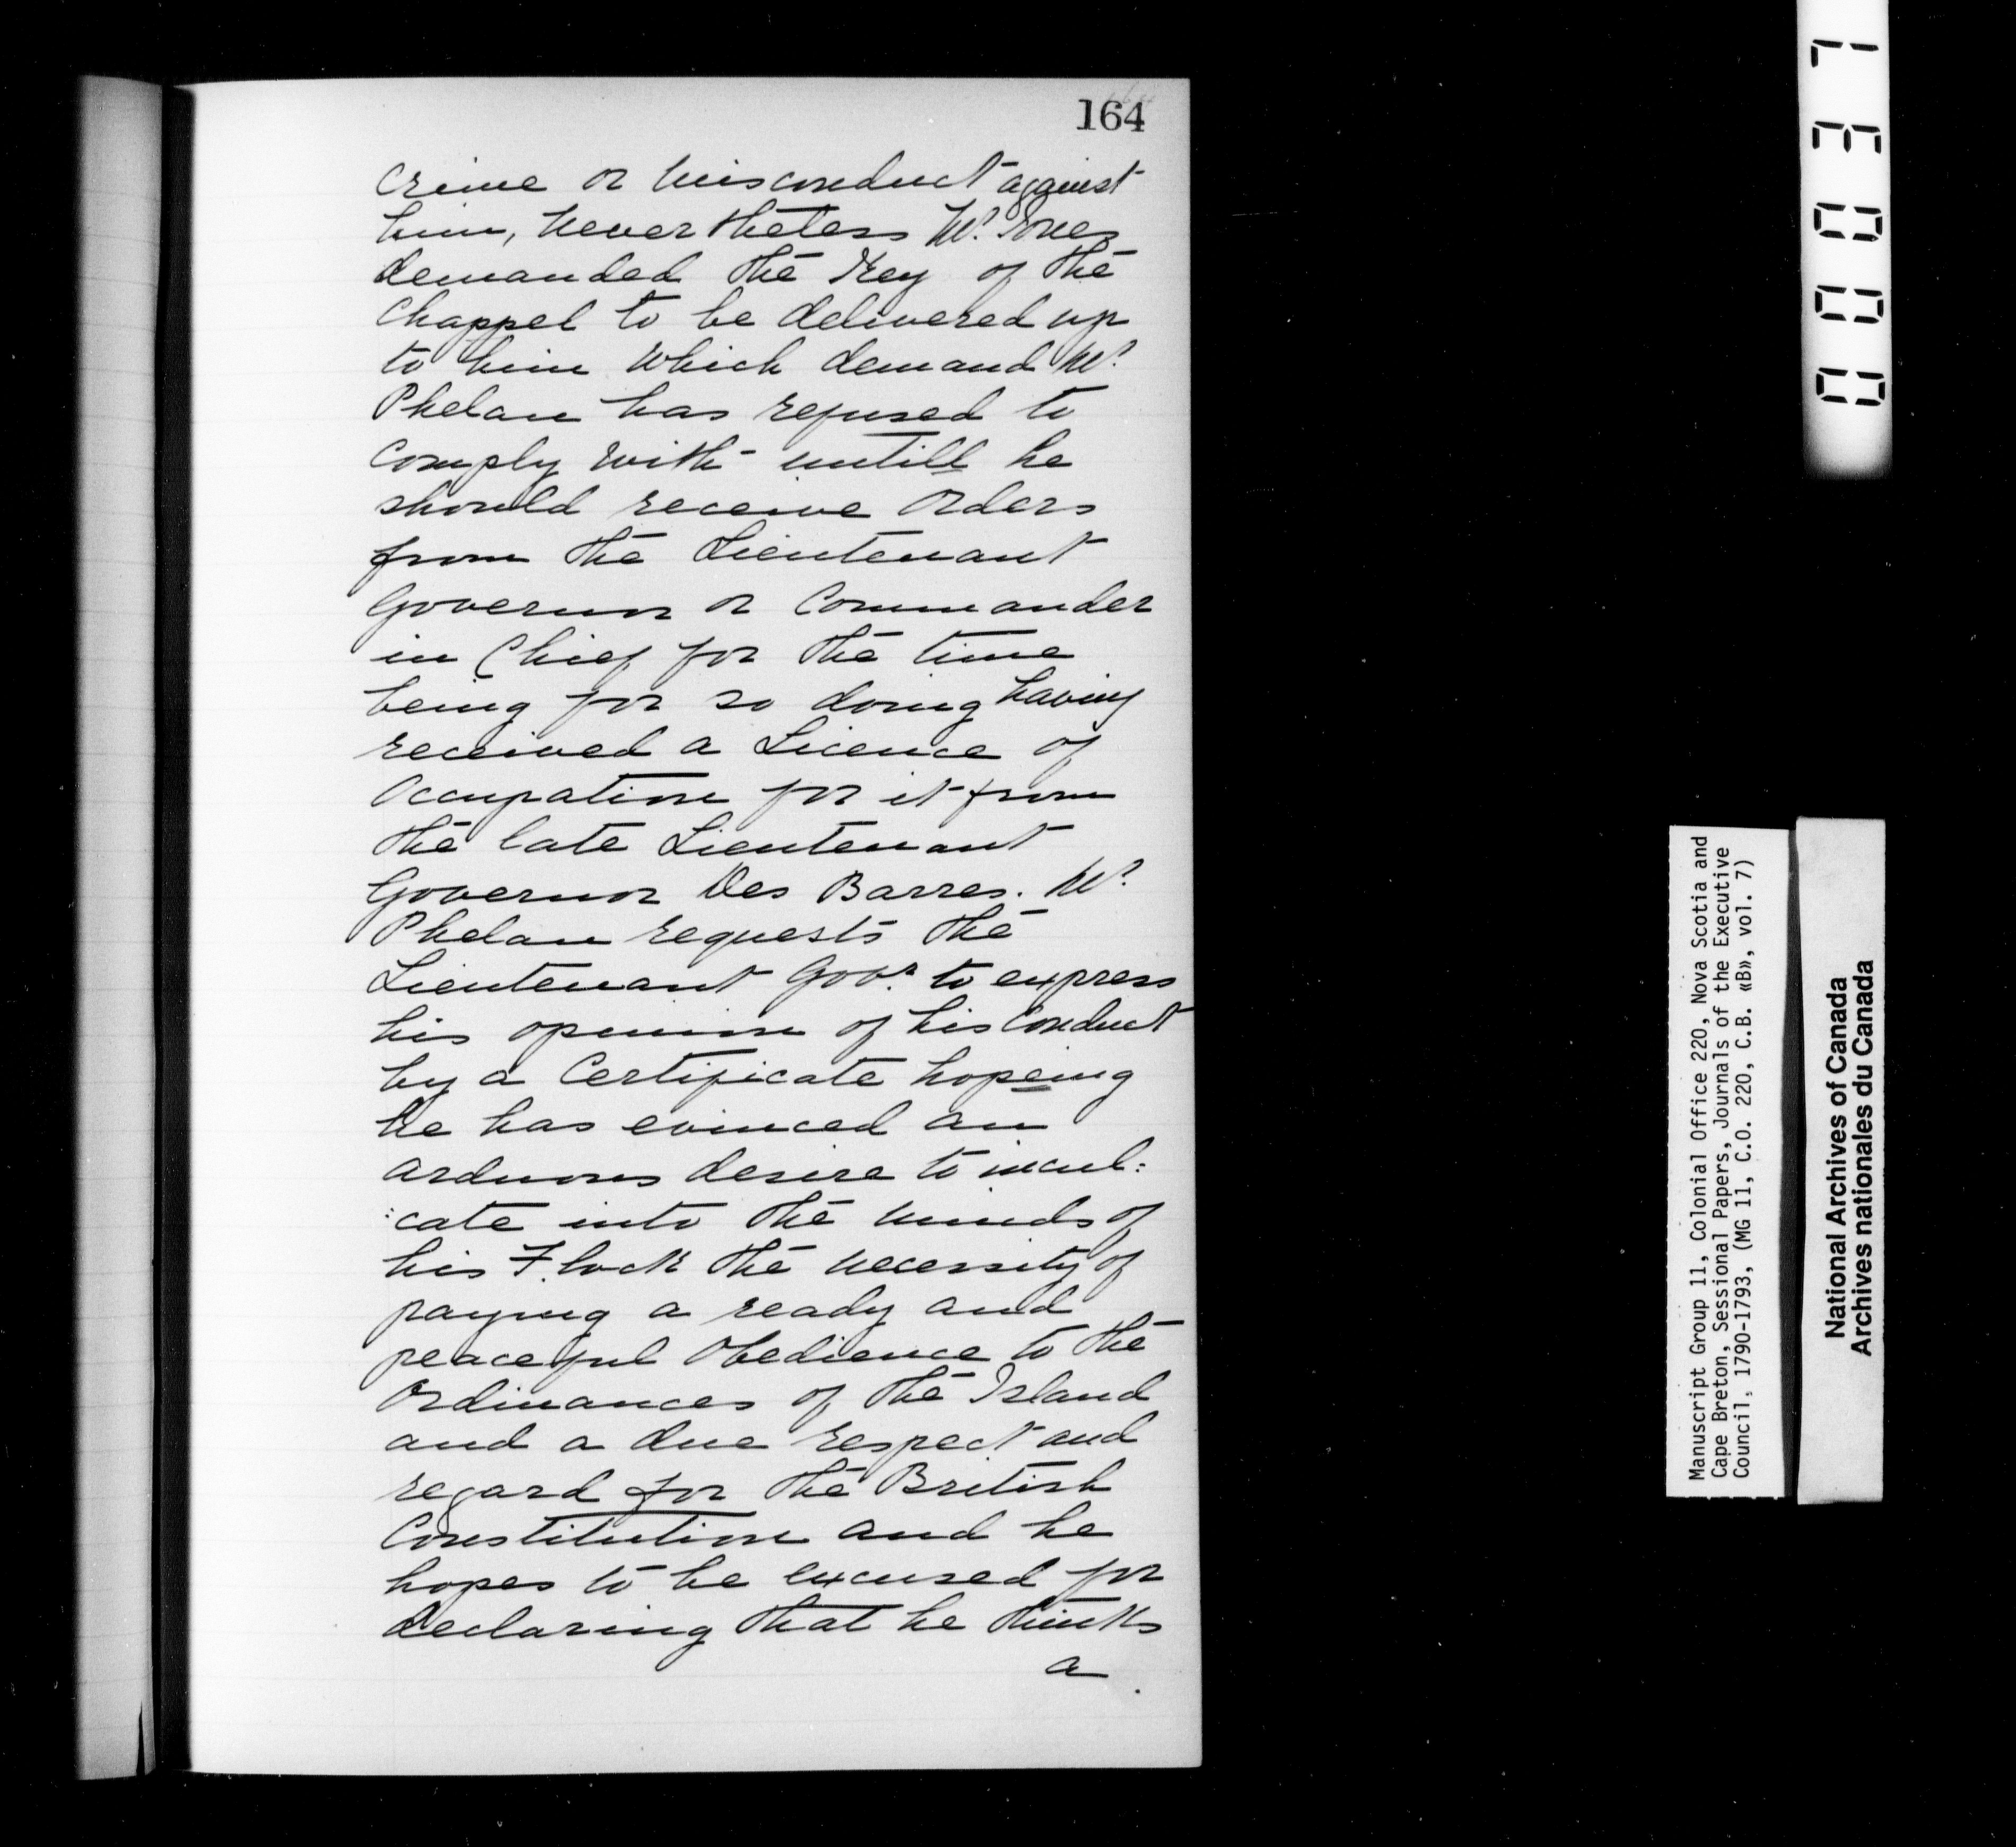 164
Crime or Misconduct against
him, Nevertheless Mr. Jones
demanded the Key of the
Chappel to be delivered up
to him which demand Mr.
Phelan has refused to
Comply with untill he
should receive Orders
from the Lieutenant
Governor or Commander
in Chief for the time
being for so doing having
received a Licence of
Occupation for it from
the late Lieutenant
Governor Des Barres. Mr.
Phelan requests the
Lieutenant Govr. to express
his opinion of his Conduct
by a Certificate hopeing
he has evinced an
arduous desire to incul:
:cate into the minds of
his Flock the necessity of
paying a ready and
peaceful Obedience to the
Ordinances of the Island
and a due respect and
regard for the British
Constitution and he
hopes to be excused for
declaring that he thinks
a
000037
Manuscript Group 11, Colonial Office 220, Nova Scotia and
Cape Breton, Sessional Papers, Journals of the Executive
Council, 1790-1793, (MG 11, C.O. 220, C.B. «B», vol. 7)
National Archives of Canada
Archives nationales du Canada